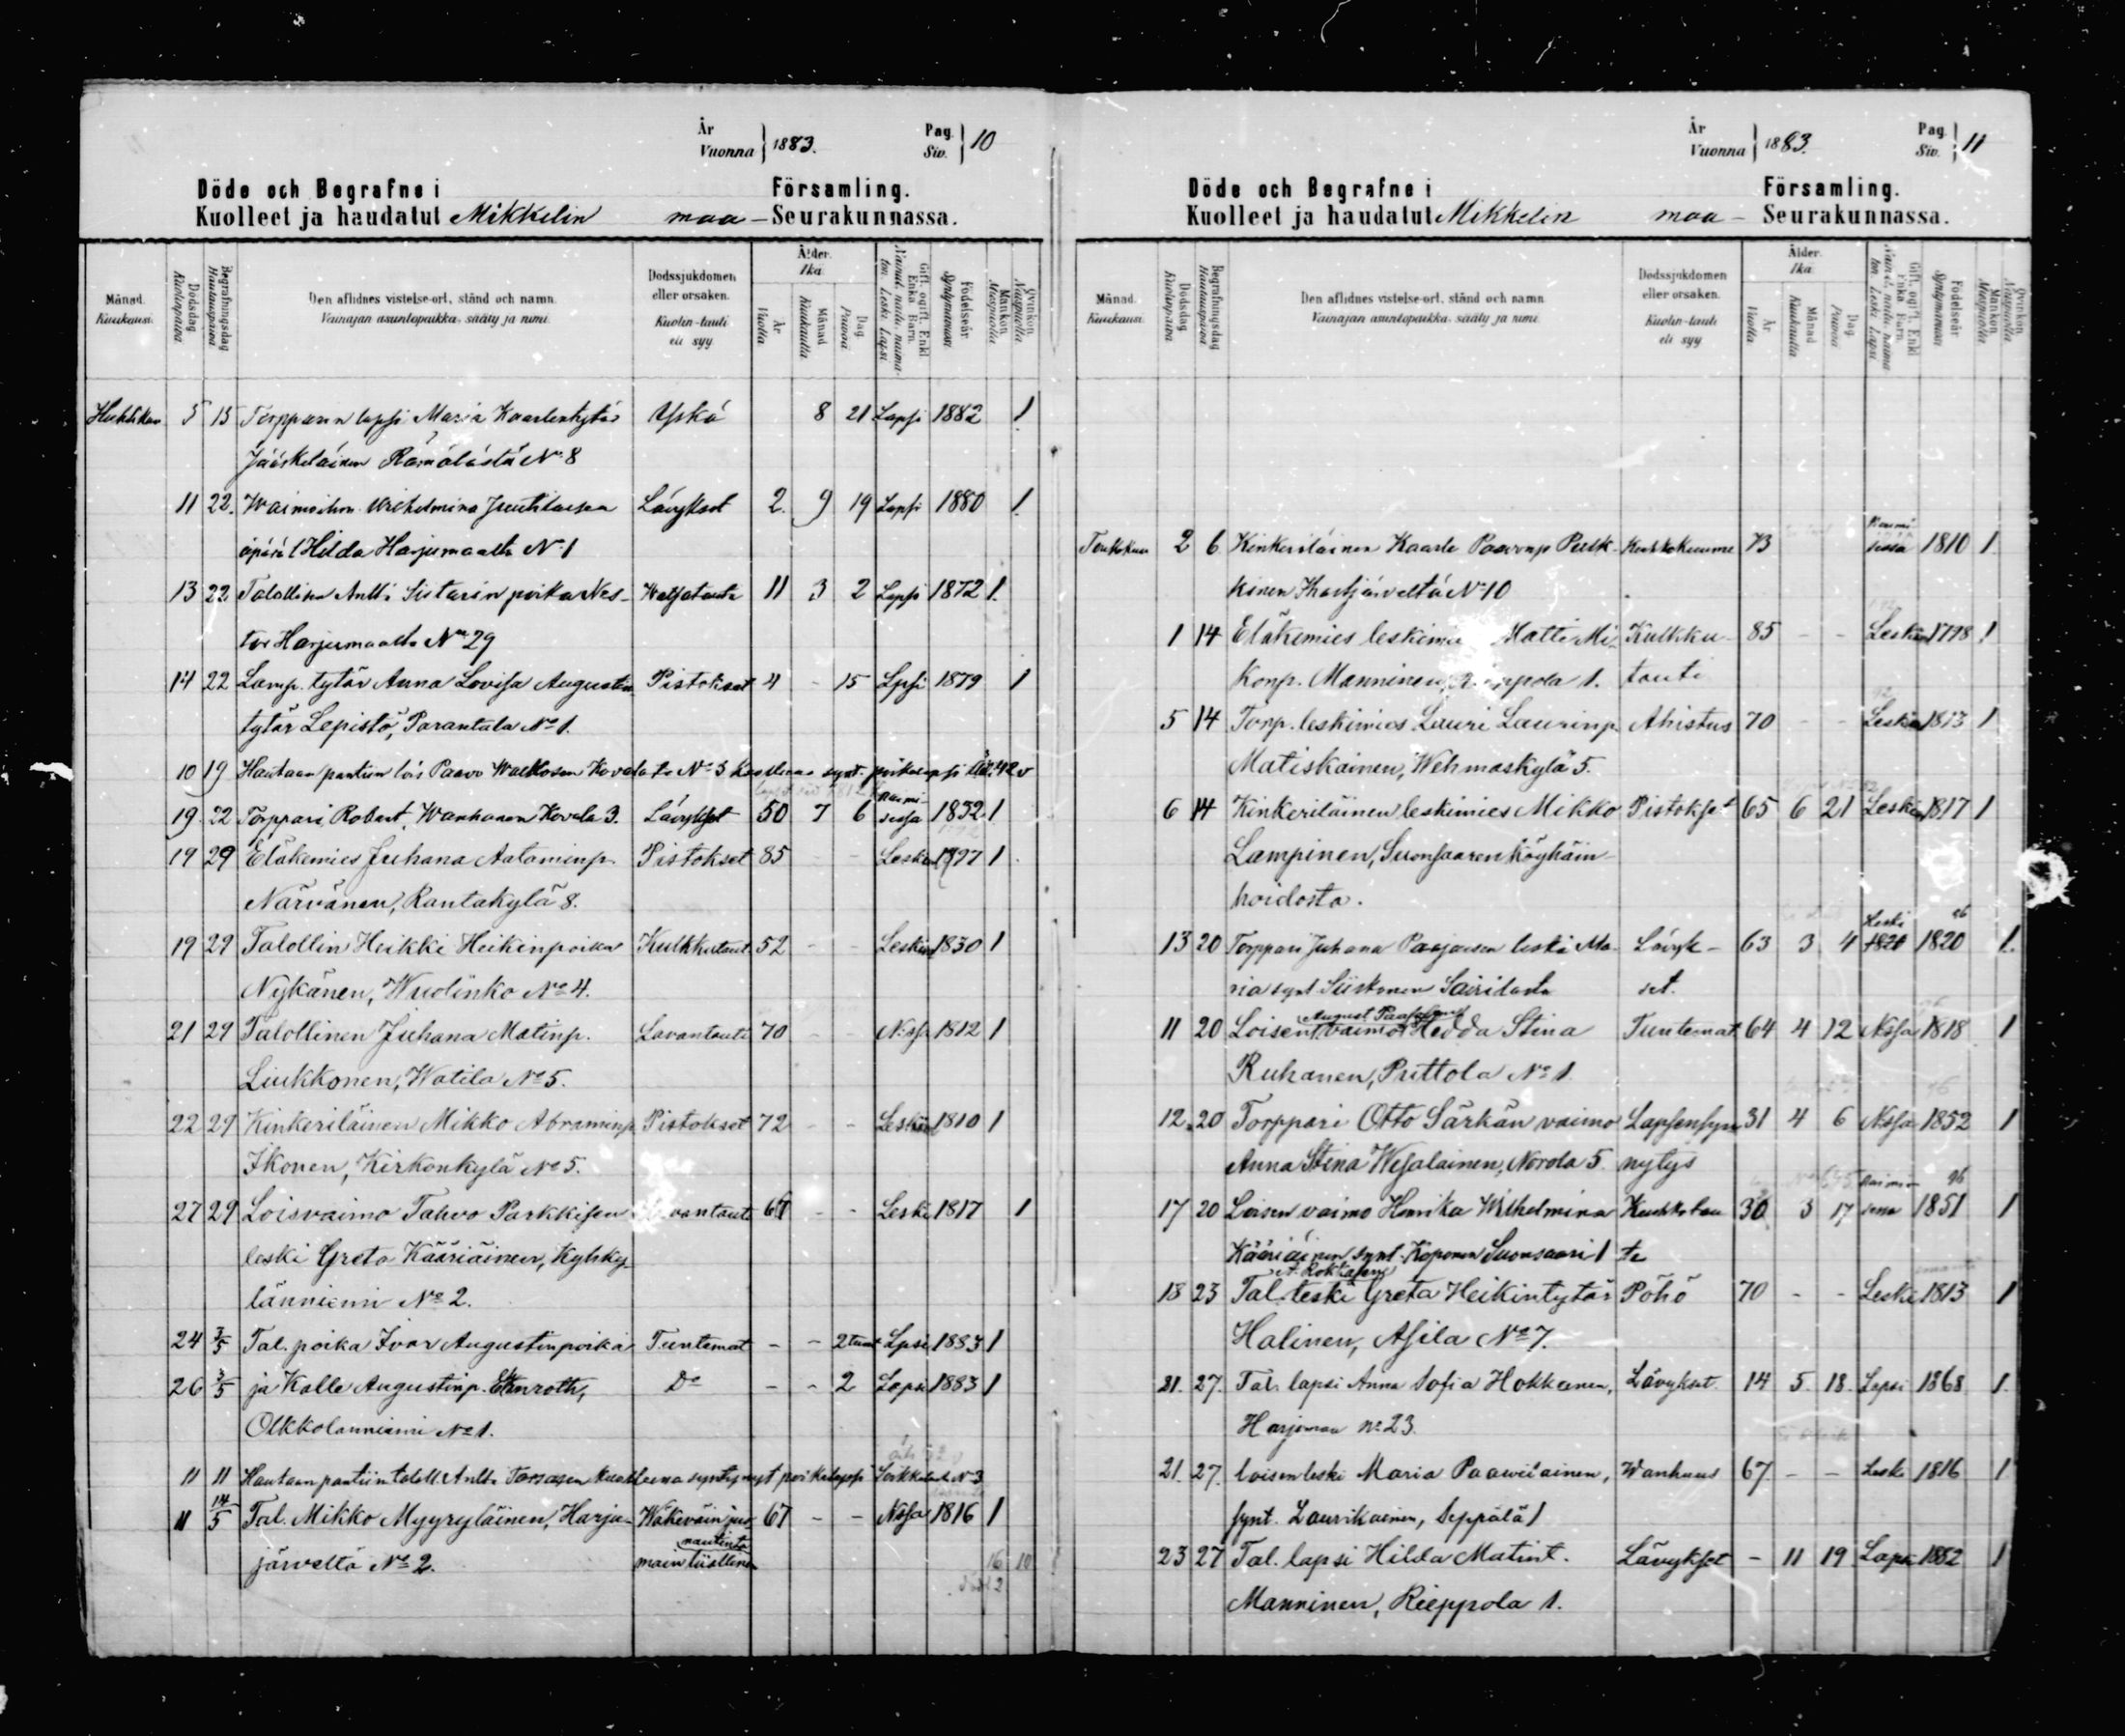 År
Vuonna } 1883.
Pag.
Siv. } 10
Döde och Begrafne i Församling.
Kuolleet ja haudatut Mikkelin maa- Seurakunnassa.
Månad. Kuukausi.
Dödsdag Kuolinpäivä
Begrafningsdag Hautauspäivä
Den aflidnes vistelse-ort, stånd och namn.
Vainajan asuntopaikka, sääty ja nimi.
Dödssjukdomen eller orsaken.
Kuolin-tauti eli syy
Ålder. Ikä
År Vuotta
Månad Kuukautta
Dag Päivää
Gift, ogift, Enkl. Enka Barn.
Födelseår Syntymävuosi
Mankön Miespuolia
Qvinkön Naispuolia
Huhtikuu 5 15 Torpparin lapsi Maria Kaarlentytär Yskä 8 21 Lapsi 1882 1
Jääskeläinen Rämälästä No 8
11 22. Wilhelmina Lävykset 2. 9 19 Lapsi 1880 1
äpärä Hilda Harjumaalta No 1
13 22 Talollisen Antti Sistarin poika Nes- 11 3 2 Lapsi 1872 1.
tor Harjumaalta No 29
14 22 Lamp. tytär Anna Lovisa Augustin Pistokset 4 - 15 Lpsi 1879 1
tytär Lepistö, Parantala No 1.
10 19 Hautaan pantiin lois Paavo No 3 kuolleena synt. poikalapsi
19 22 Torppari Robert Wanhanen Kovala 3. Lävykset 50 7 6 Naimisissa 1832 1
19 29 Eläkemies Juhana Aataminp. Pistokset 85 - - Leski 1797 1
Närvänen, Rantakylä 8.
19 29 Talollin Heikki Heikinpoika Kulkkutaut 52 - - Leski 1830 1
Nykänen, Wuolinko No 4.
21 29 Talollinen Juhana Matinp. Lavantauti 70 - - N:ssa 1812 1
Liukkonen, Watila No 5.
22 29 Kinkeriläinen Mikko Abraminp Pistokset 72 - - Leski 1810 1
Ikonen, Kirkonkylä No 5.
27 29 Loisvaimo Tahvo Parkkisen Lavantauti - - Leski 1817 1
leski Greta Kääriäinen, Kylsky-
länniemi No 2.
24 3/5 Tal. poika Ivar Augustinpoika Tuntemat - - 2 tunt Lpsi 1883 1
26 3/5 ja Kalle Augustinp. Do - - 2 Lapsi 1883 1
Olkkolanniemi No 1.
11 11 Hautaan pantiin talol. Antti Torvasen kuolleena syntynyt poikalapsi No 3
11 14/5 Tal. Mikko Myyryläinen, Harju- Wäkeväin juo- 67 - - Nssa 1816 1
järveltä No 2. main nautinto
16 10
År
Vuonna } 1883.
Pag.
Siv. } 11
Döde och Begrafne i Församling.
Kuolleet ja haudatut Mikkelin maa- Seurakunnassa.
Månad. Kuukausi.
Dödsdag Kuolinpäivä
Begrafningsdag Hautauspäivä
Den aflidnes vistelse-ort, stånd och namn.
Vainajan asuntopaikka, sääty ja nimi.
Dödssjukdomen eller orsaken.
Kuolin-tauti eli syy
Ålder. Ikä
År Vuotta
Månad Kuukautta
Dag Päivää
Gift, ogift, Enkl. Enka Barn.
Födelseår Syntymävuosi
Mankön Miespuolia
Qvinkön Naispuolia
Toukokuu 2 6 Kinkeriläinen Kaarle Paavonp Pulk- 73 Naimisissa 1810 1
kinen No 10
1 14 Eläkemies leskimies Matti Mi- Kulkku- 85 - - Leski 1798 1
konp. Manninen, Rieppola 1. tauti
5 14 Torp. leskimies Lauri Laurinp. Ahistus 70 - - Leski 1813 1
Matiskainen, Wehmaskylä 5.
6 14 Kinkeriläinen leskimies Mikko Pistokset 65 6 21 Leski 1817 1
Lampinen, Suonsaaren köyhäin-
hoidosta.
13 20 Torppari Juhana Paajasen leski Ma- Lävyk- 63 3 4 Leski 1820 1.
ria synt. Siiskonen Sairilasta set.
11 20 Loisen August Paajasen vaimo Hedda Stina Tuntemat 64 4 12 Nssa 1818 1
Ruhanen, Puttola No 1
12 20 Torppari Otto Särkän vaimo Lapsensyn- 31 4 6 Nssa 1852 1
Anna Stina Wesalainen, Norola 5. nytys
17 20 Loisen vaimo Henrika Wilhelmina Keuhkotau- 30 3 17 Naimisissa 1851 1
Kääriäinen, synt. Koponen Suonsaari 1 ti
18 23 Tal. A. Rokkasen leski Greta Heikintytär Pöhö 70 - - Leski 1813 1
Halinen, Asila No 7.
21. 27. Tal. lapsi Anna Sofia Hokkanen, Lävykset. 14 5. 18. Lapsi 1868 1.
Harjumaa no 23.
21. 27. loisen leski Maria Paawilainen, Wanhuus 67 - - Leski 1816 1
synt. Laurikainen, Seppälä 1
23 27 Tal. lapsi Hilda Matint. Lävykset - 11 19 Lapsi 1882 1
Manninen, Rieppola 1.